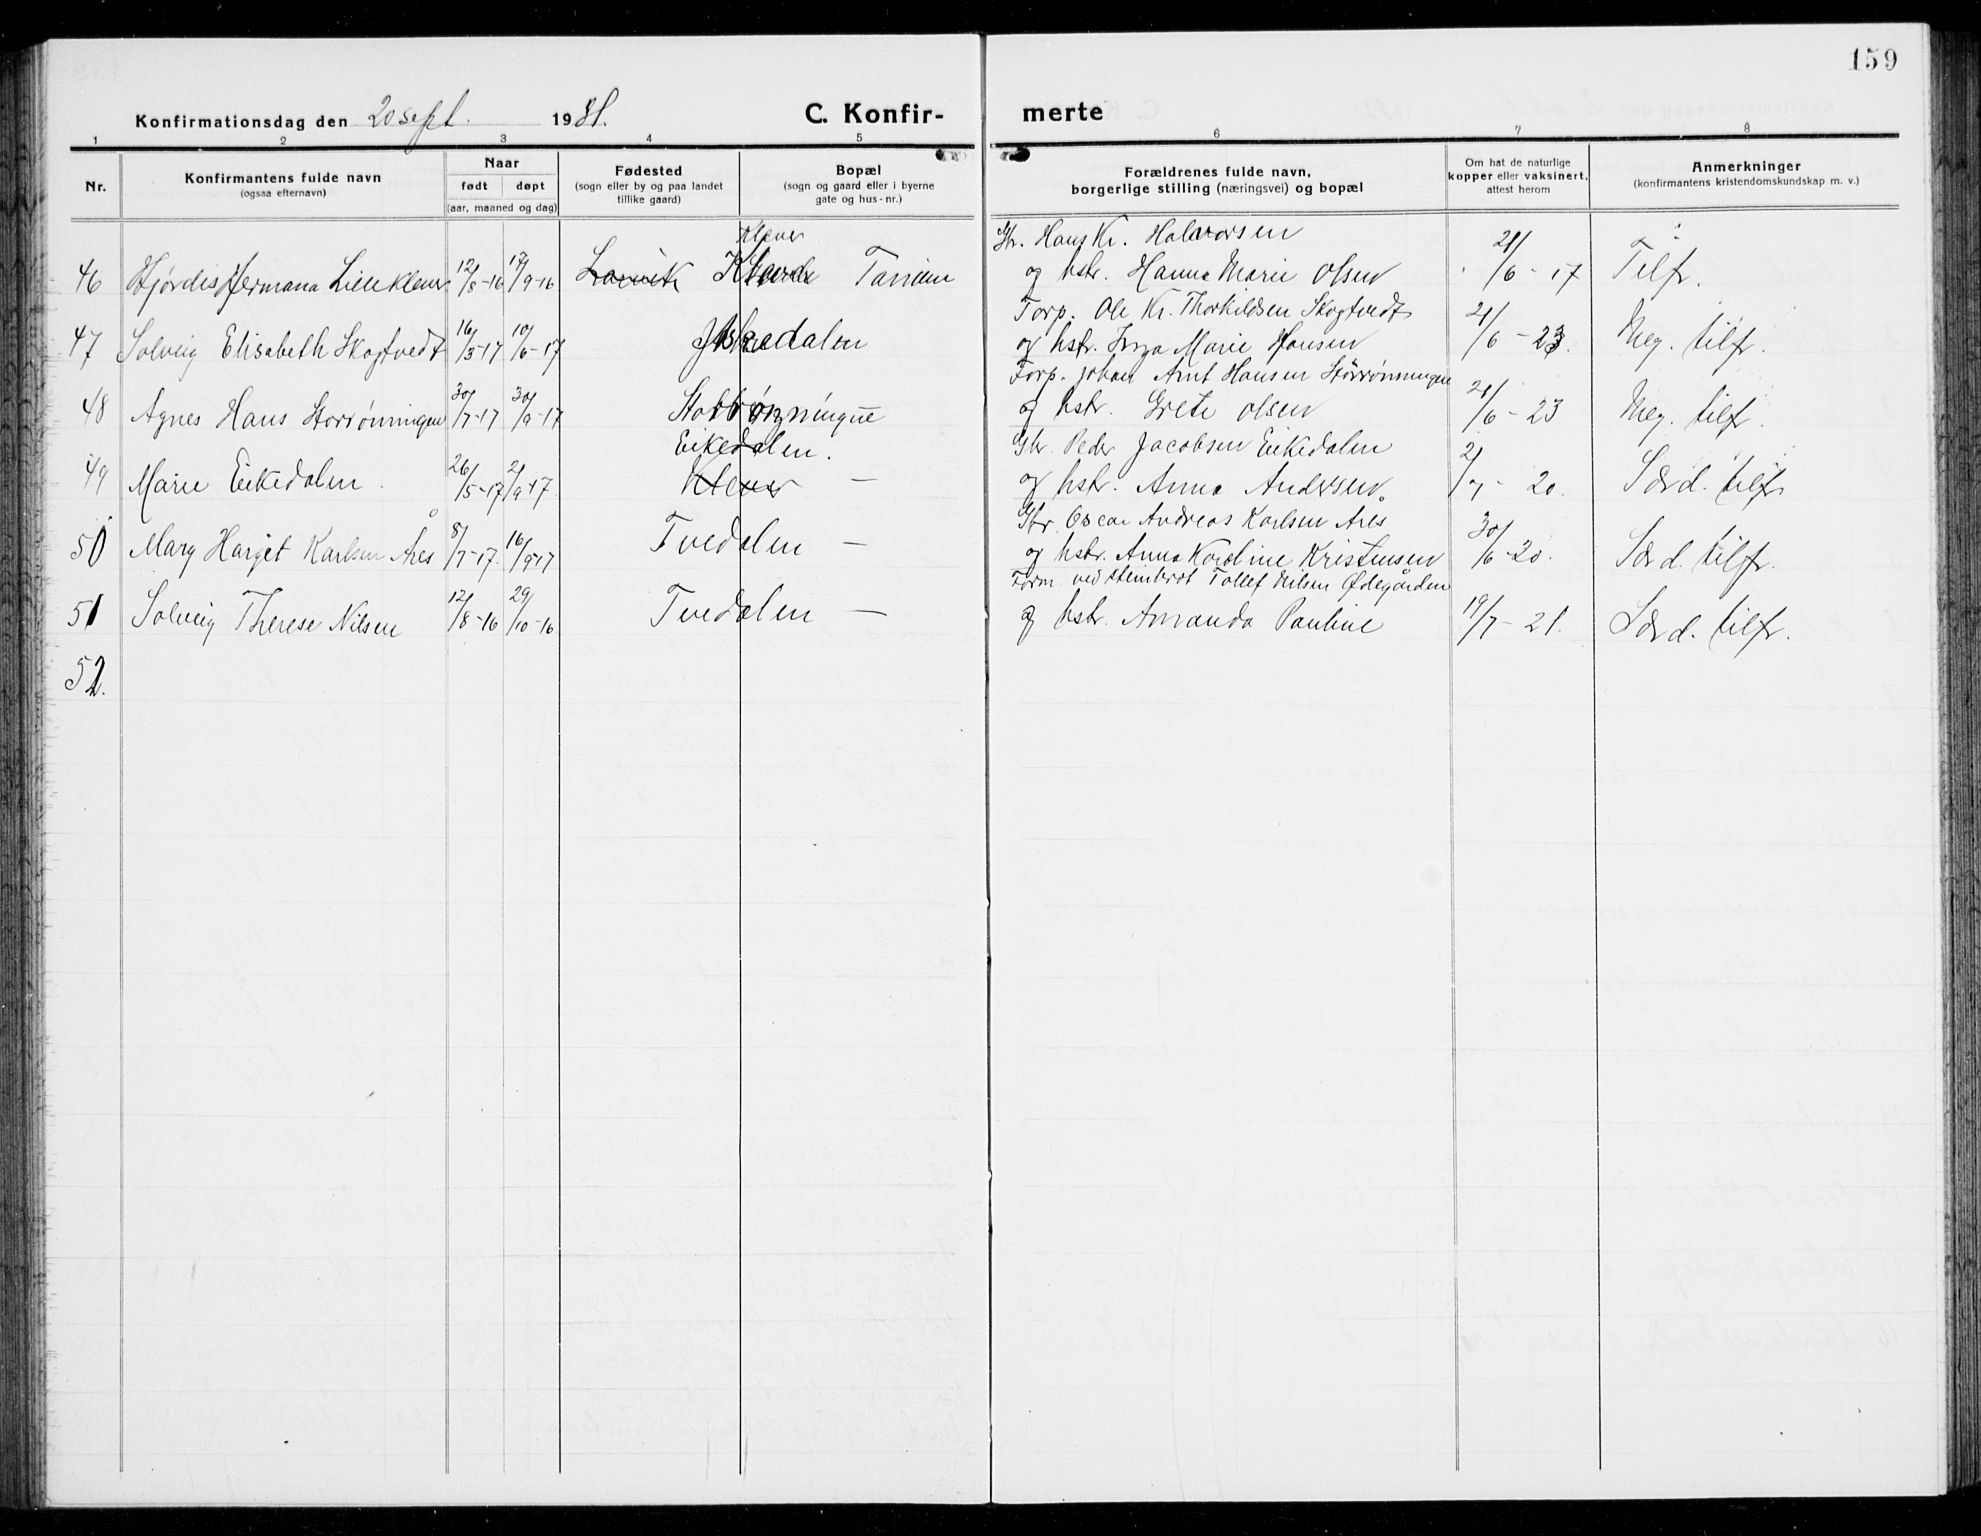 159
Konfirmationsdag den 20 sept. 1931.
C. Konfir-
merte
1 2 3 4 5 6 7 8
Nr.
Konfirmantens fulde navn
(ogsaa efternavn)
Naar
født døpt
(aar, maaned og dag)
Fødested
(sogn eller by og paa landet
tillike gaard)
Bopæl
(sogn og gaard eller i byerne
gate og hus-nr.)
Forældrenes fulde navn,
borgerlige stilling (næringsvei) og bopæl
Om hat de naturlige
kopper eller vaksinert,
attest herom
Anmerkninger
(konfirmantens kristendomskundskap m. v.)
Klever
Gbr. Hans Kr. Halvorsen
46 Hjørdis Hermana Lille Klever 12/8-16 17/9-16 Larvik Tanum
og hstr. Hanna Marie Olsen 21/6-17 Tilfr.
Forp. Ole Kr. Thorkildsen Skogtvedt
47 Solveig Elisabeth Skogtvedt 16/3-17 10/6-17
og hstr. Inga Marie Hansen 21/6-23. Meg. tilfr.
Forp. Johan Arnt Hansen Storrønningen
48 Agnes Hans Storrønningen 30/7-17 30/9-17
og hstr. Grete Olsen 21/6-23 Meg. tilfr.
Eikedalen.
Gbr. Peder Jacobsen Eikedalen
49 Marie Eikedalen. 26/5-17 2/9-17 Klever —
og hstr. Anna Andersen. 2/7-20. Særd. tilfr.
Gbr. Oscar Andreas Karlsen Åres
50 Mary Harget Karlsen Åres 8/7-17. 16/9-17 Tvedalen —
og hstr. Anna Karoline Kristensen 30/6-20. Særd. tilfr.
Form. ved stenbrot Tollef Nilsen Ødegården
51 Solveig Therese Nilsen 12/8-16 29/10-16 Tvedalen —
og hstr. Amanda Pauline 19/7-21. Særd. tilfr.
52.